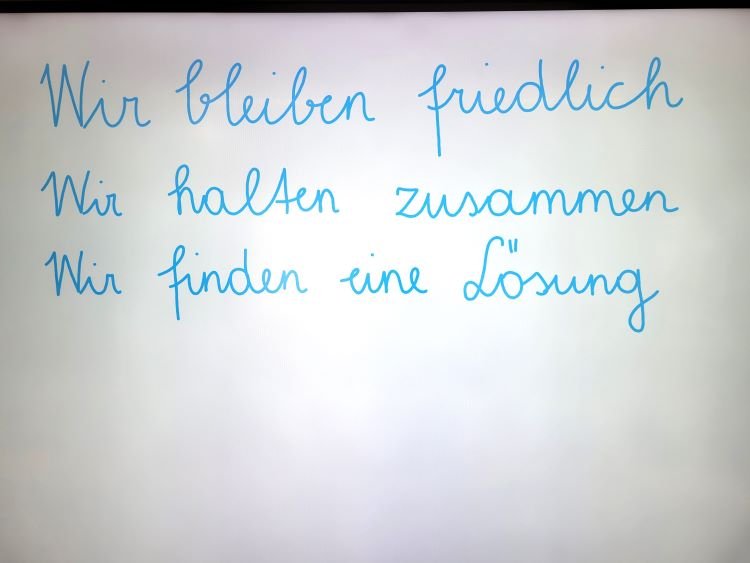 Wir bleiben friedlich
Wir halten zusammen
Wir finden eine Lösung